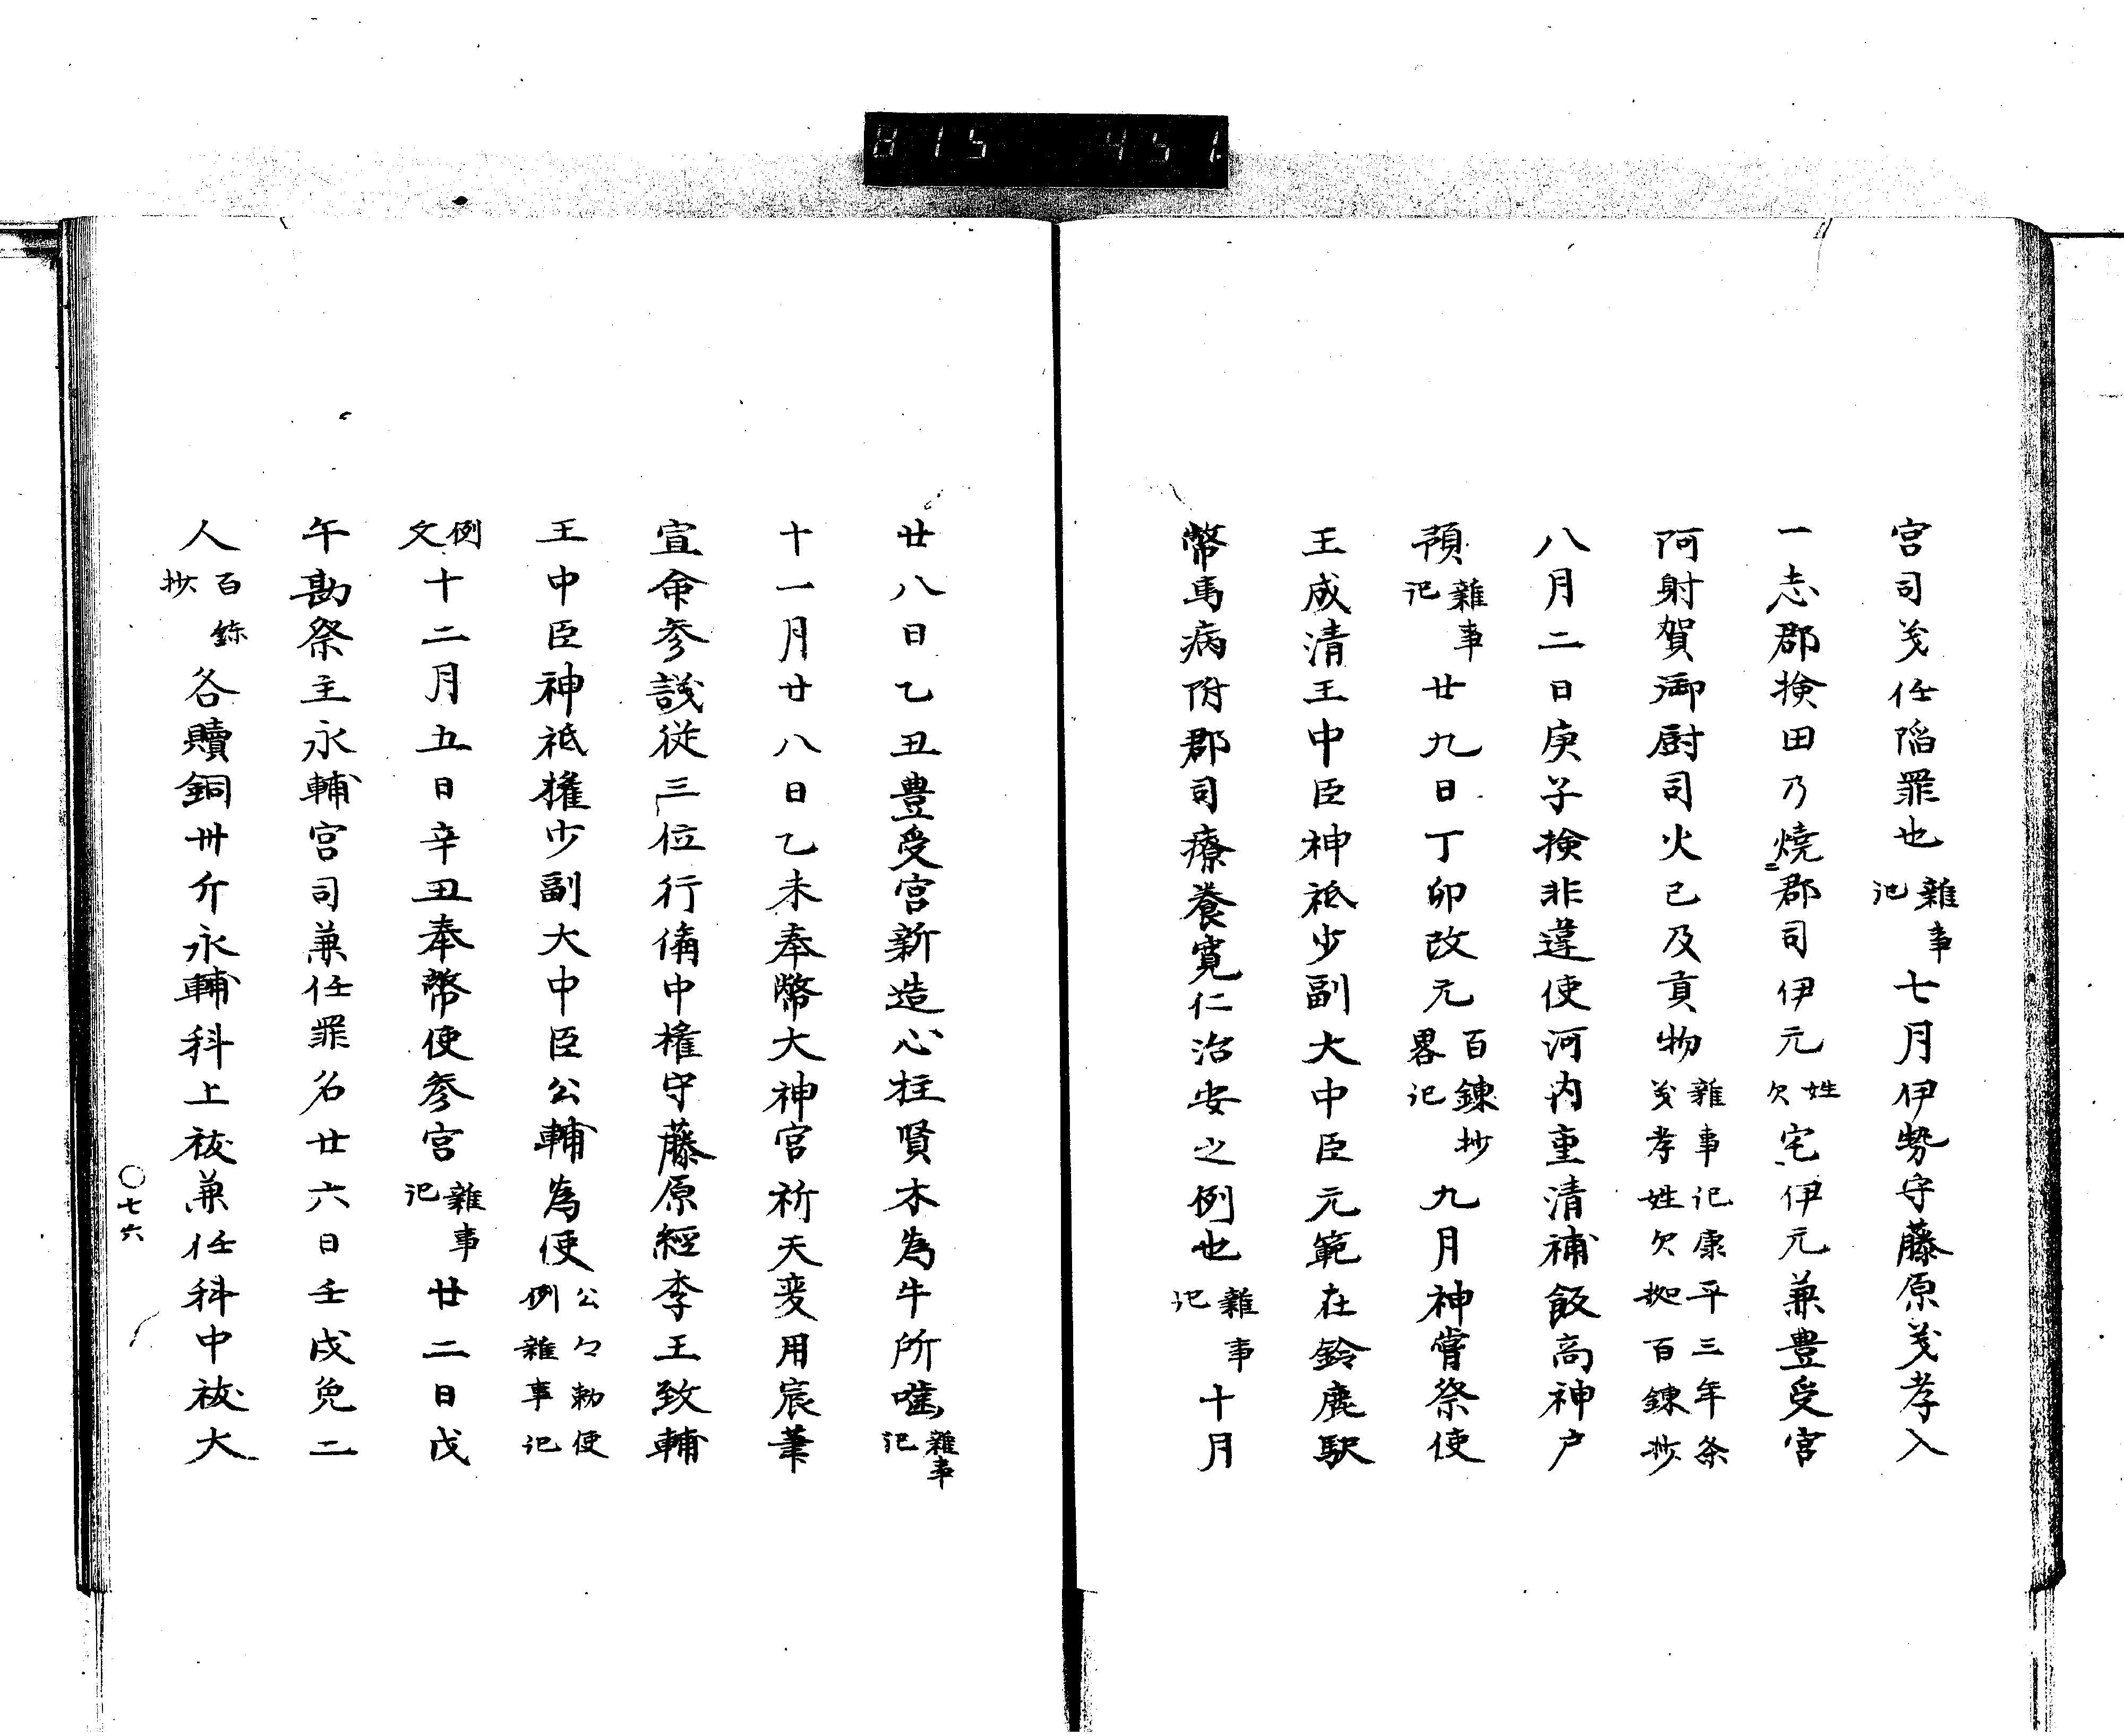 815 451
宮司兼任陷罪也雜事記七月伊勢守藤原義孝入
一志郡検田乃燒郡司伊元姓欠宅伊元兼豊受宮
阿射賀御厨司火已及貢物雜事記康平三年条義孝姓欠拠百鍊抄
八月二日庚子検非違使河内重清補飯高神戸
預雜事記廿九日丁卯改元百鍊抄畧記九月神嘗祭使
王成清王中臣神祇少副大中臣元範在鈴鹿駅
幣馬病附郡司療養寛仁治安之例也雜事記十月
廿八日乙丑豊受宮新造心柱賢木為牛所噛雜事記
十一月廿八日乙未奉幣大神宮祈天変用宸筆
宣命参議従三位行備中権守藤原経季王致輔
王中臣神祇権少副大中臣公輔為使公々勅使例雜事記
例文十二月五日辛丑奉幣使参宮雜事記廿二日戊
午勘祭主永輔宮司兼任罪名廿六日壬戌免二
人百鍊抄各贖銅卅斤永輔科上祓兼任科中祓大
〇七六